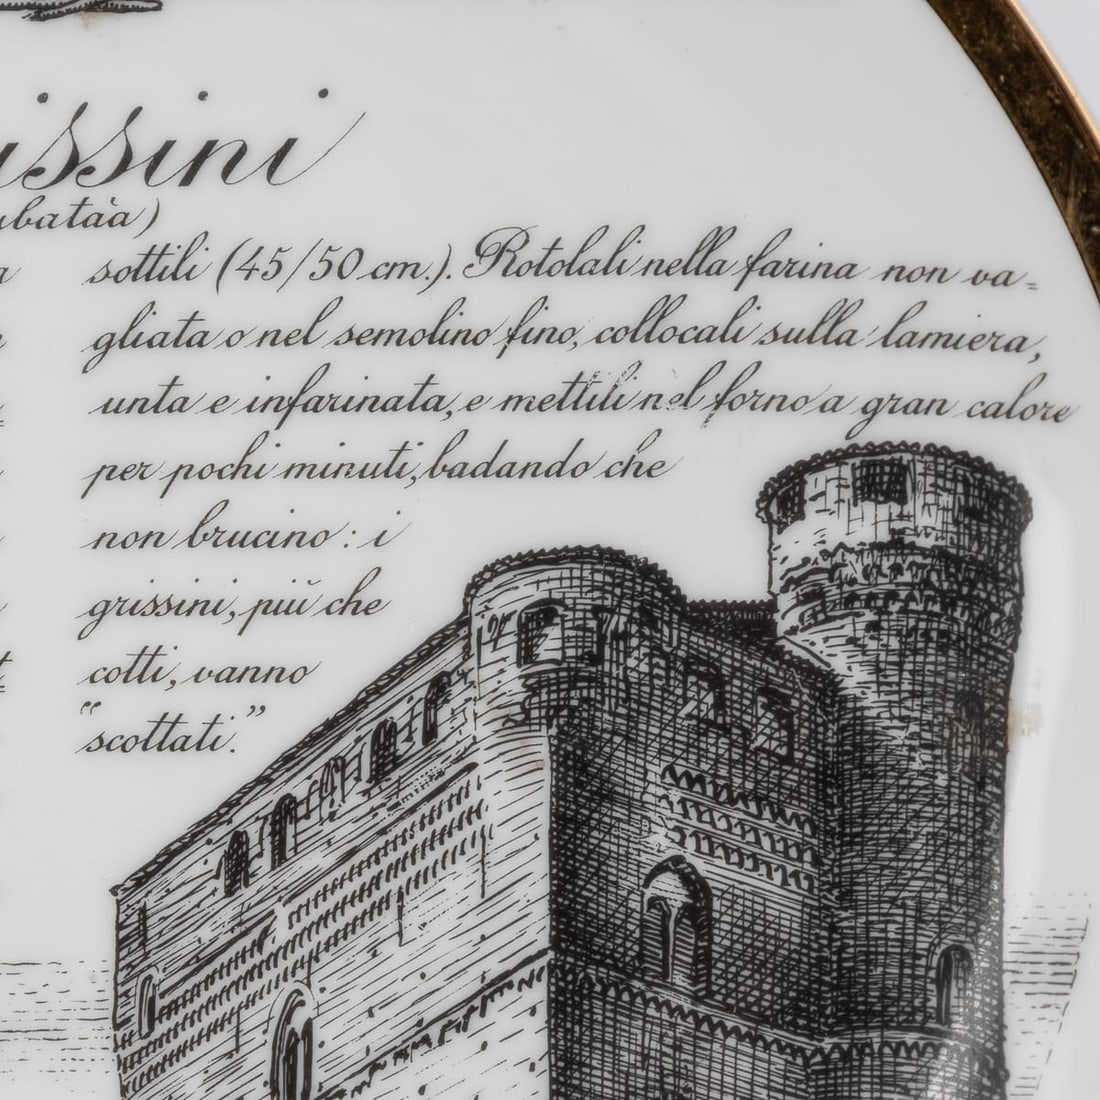 issini
ubataà)
sottili (45/50 cm.). Rotolali nella farina non va=
gliata o nel semolino fino, collocali sulla lamiera,
unta e infarinata, e mettili nel forno a gran calore
per pochi minuti, badando che
non brucino: i
grissini, più che
cotti, vanno
"scottati."